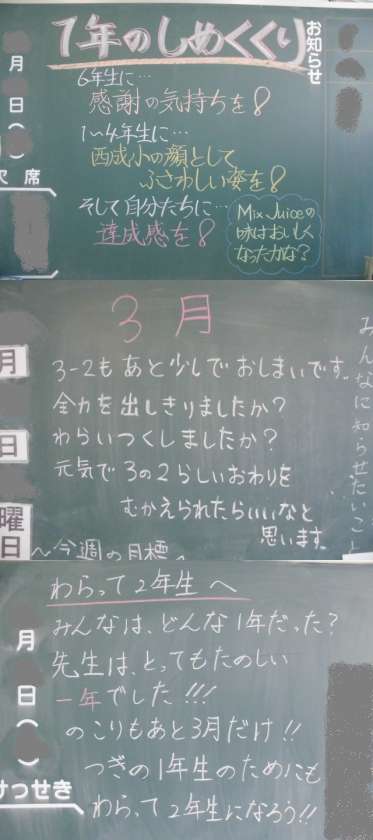 1年のしめくくり
お知らせ
6年生に…
感謝の気持ちを!
1〜4年生に…
西成小の顔として
ふさわしい姿を!
そして自分たちに…
達成感を!
Mix Juiceの
味はおいしく
なったかな?
月
日
(
)
欠席
3月
みんなに知らせたいこと
3-2もあと少しでおしまいです。
全力を出しきりましたか?
わらいつくしましたか?
元気で3の2らしいおわりを
むかえられたらいいなと
思います。
月
日
曜日
〜今週の目標〜
わらって2年生へ
みんなは、どんな1年だった?
先生は、とってもたのしい
一年でした!!!
のこりもあと3月だけ!!
つぎの1年生のためにも
わらって2年生になろう!!
月
日
(
)
けっせき